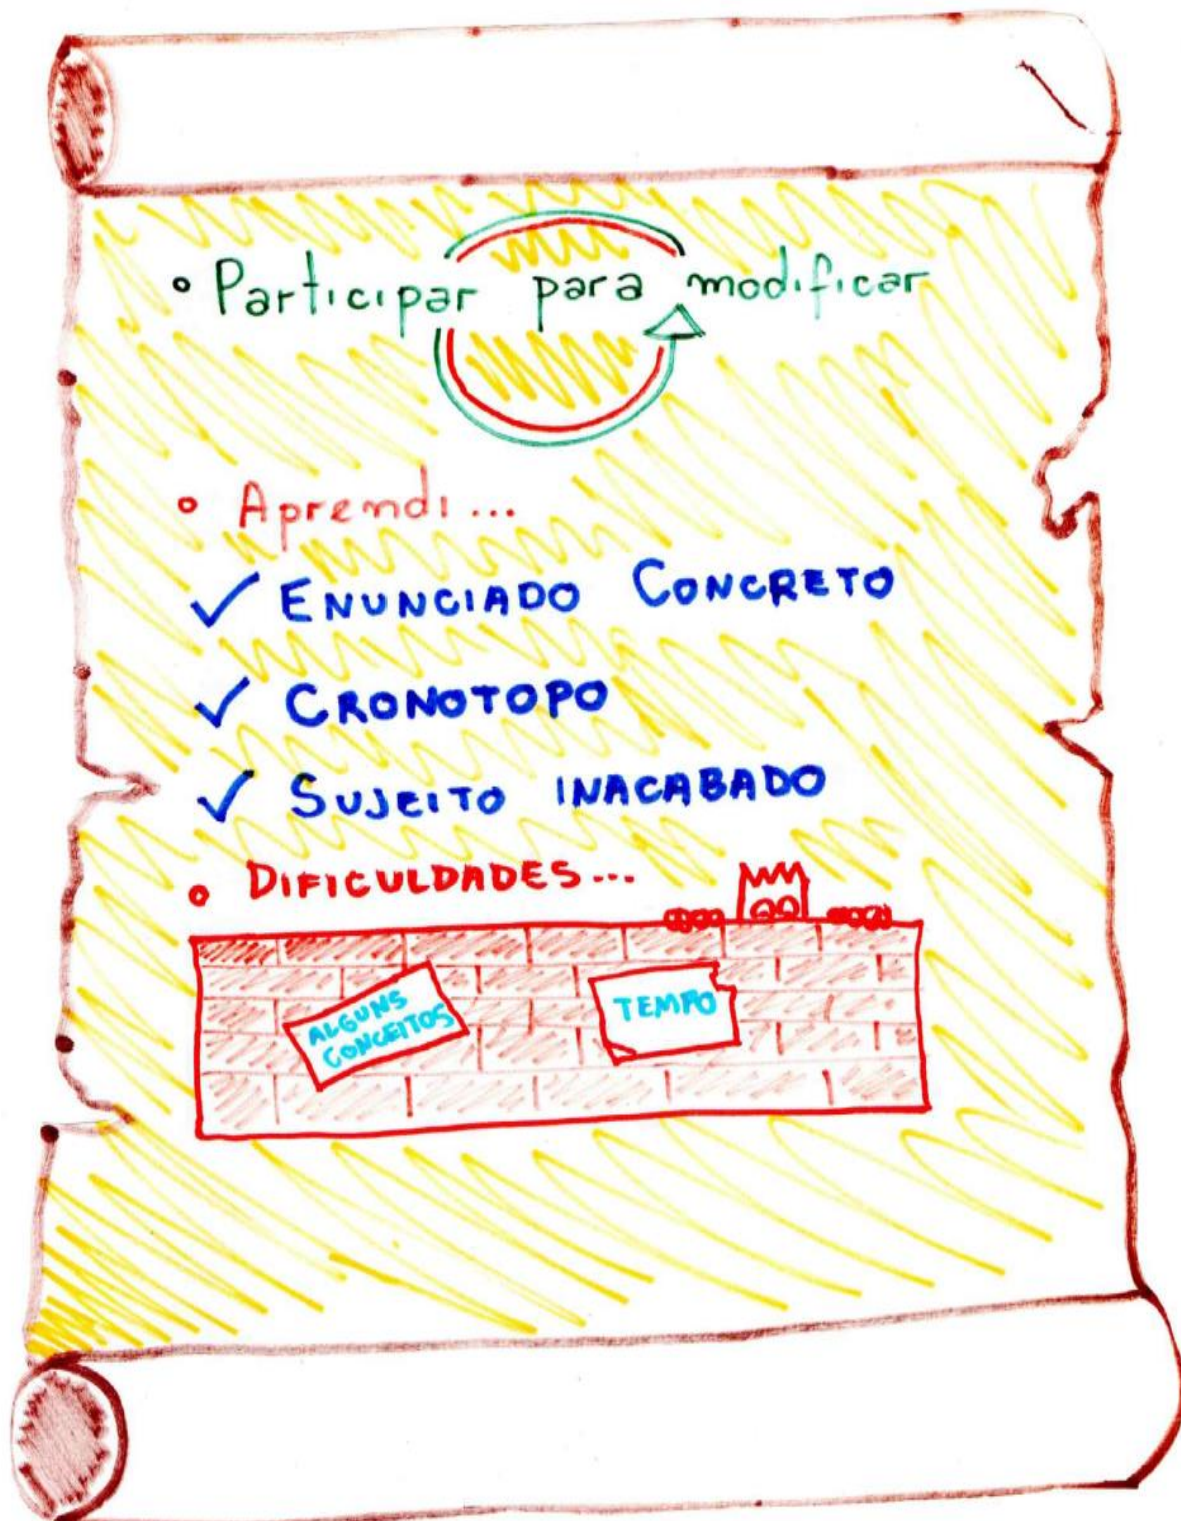 • Participar para modificar
• Aprendi...
✓ ENUNCIADO CONCRETO
✓ CRONOTOPO
✓ SUJEITO INACABADO
• DIFICULDADES...
ALGUNS
CONCEITOS
TEMPO